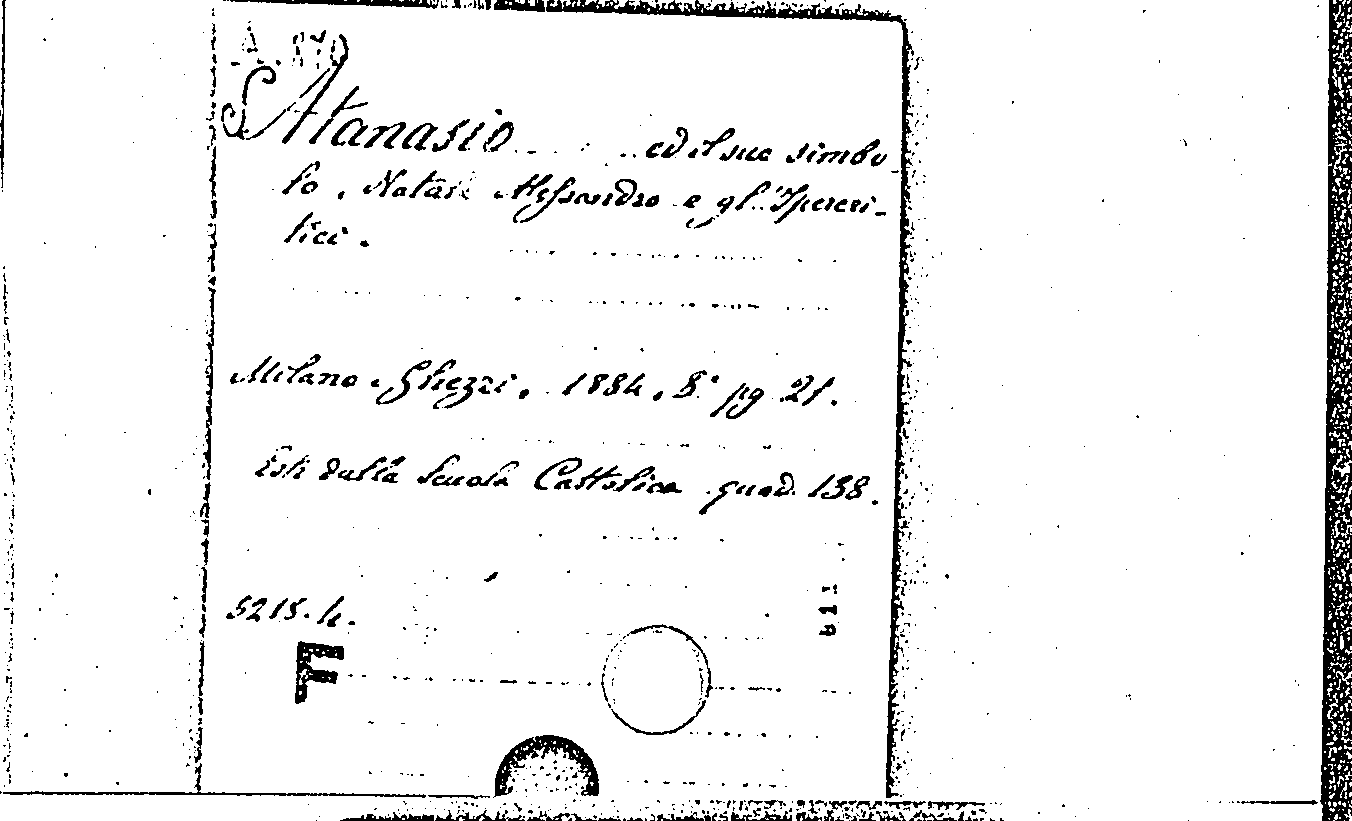 A.870
S Atanasio ed il suo simbo
lo. Natale Alessandro e gl'Ipercri-
tici.
Milano. Ghezzi. 1884. 8° pg 21.
Estr dalla Scuola Cattolica quad. 138.
5215.h.
F